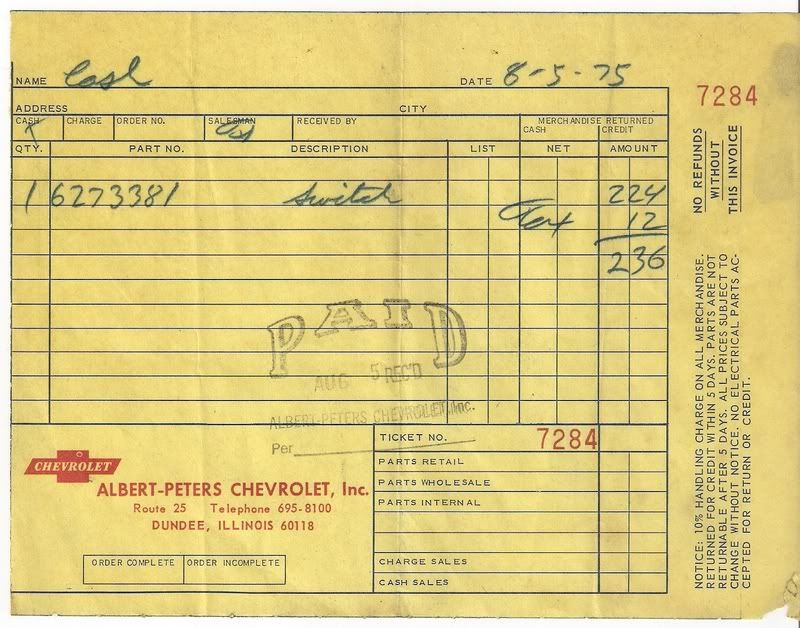 NAME Cash DATE 8-5-75
7284
ADDRESS CITY
CASH CHARGE ORDER NO. SALESMAN RECEIVED BY MERCHANDISE RETURNED
CASH CREDIT
QTY. PART NO. DESCRIPTION LIST NET AMOUNT
1 6273381 Switch 224
Tax 12
236
NO REFUNDS
WITHOUT
THIS INVOICE
PAID
AUG 5 REC'D
ALBERT-PETERS CHEVROLET, Inc.
Per
CHEVROLET
ALBERT-PETERS CHEVROLET, Inc.
Route 25 Telephone 695-8100
DUNDEE, ILLINOIS 60118
ORDER COMPLETE ORDER INCOMPLETE
TICKET NO. 7284
PARTS RETAIL
PARTS WHOLESALE
PARTS INTERNAL
CHARGE SALES
CASH SALES
NOTICE: 10% HANDLING CHARGE ON ALL MERCHANDISE.
RETURNED FOR CREDIT WITHIN 5 DAYS. PARTS ARE NOT
RETURNABLE AFTER 5 DAYS. ALL PRICES SUBJECT TO
CHANGE WITHOUT NOTICE. NO ELECTRICAL PARTS AC-
CEPTED FOR RETURN OR CREDIT.